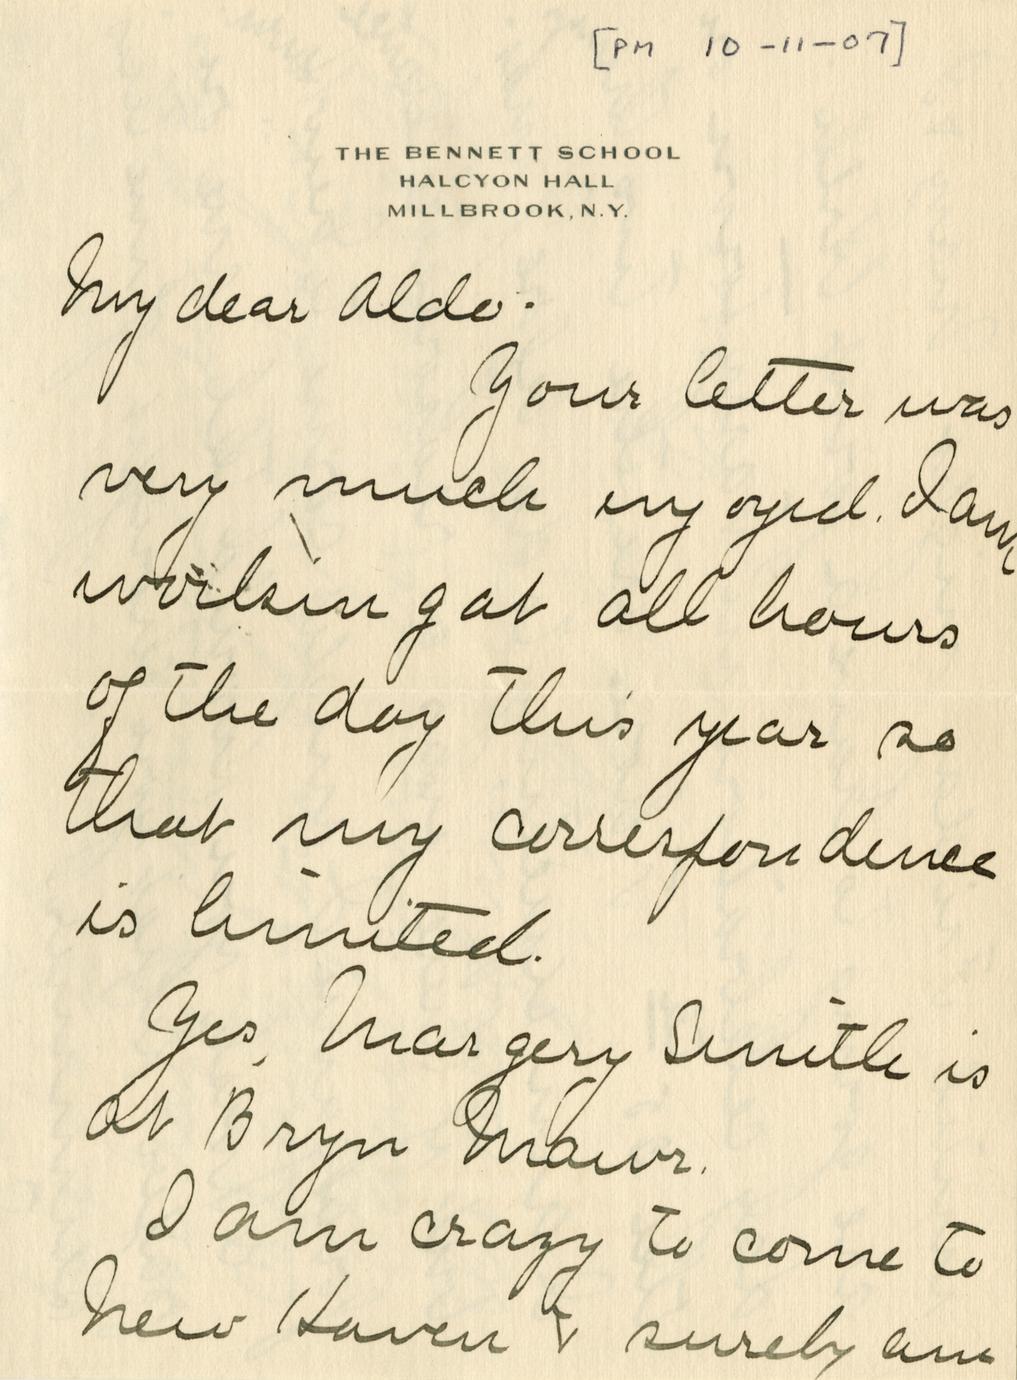 [PM 10-11-07]
THE BENNETT SCHOOL
HALCYON HALL
MILLBROOK, N.Y.
My dear Aldo.
Your letter was
very much enjoyed. I am
working at all hours
of the day this year so
that my correspondence
is limited.
Yes, Margery Smith is
at Bryn Mawr.
I am crazy to come to
New Haven & surely am